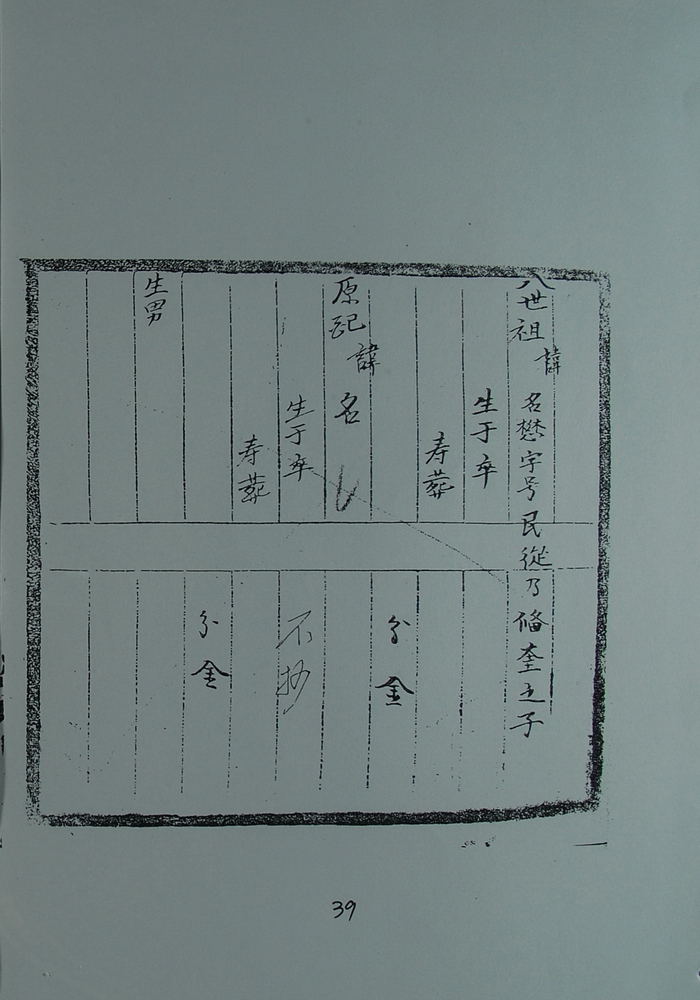 八世祖諱名懋字号民從乃脩奎之子
生于卒
寿葬
分金
原配諱名
不抄
生于卒
寿葬
分金
生男
39